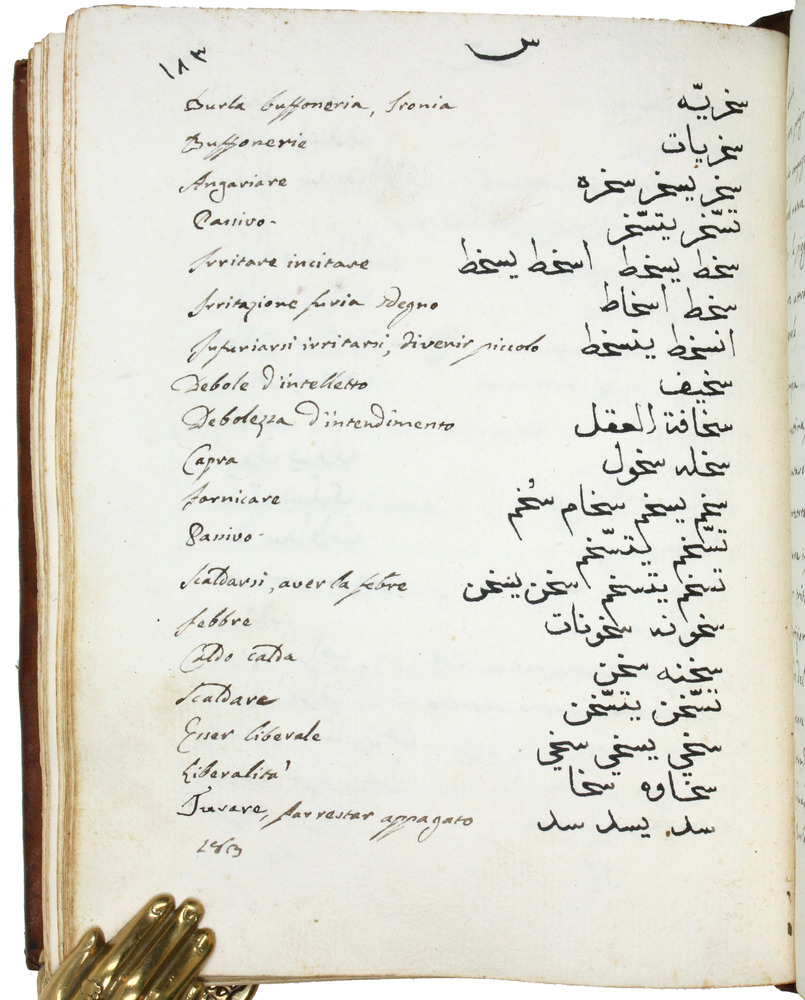 ١٨٣ س
Burla buffoneria, Ironia سخريّه
Buffonerie سخريات
Angariare سخر يسخر سخره
Passivo. تسّخر يتسّخر
Irritare incitare سخط يسخط اسخط يسخط
Irritazione furia sdegno سخط اسخاط
Infuriarsi irritarsi, divenir piccolo انسخط ينسخط
Debole d'intelletto سخيف
Debolezza d'intendimento سخافة العقل
Capra سخله سخول
fornicare سخم يسخم سخام
Passivo. تسّخم يتسّخم
Scaldarsi, aver la febbre سخن يسخن
febbre سخونه سخونات
Caldo calda سخنه سخن
Scaldare تسّخن يتسّخن
Esser liberale سخي يسخي سخي
Liberalità سخاوه سخا
Turare, far restar appagato سد. يسد سد